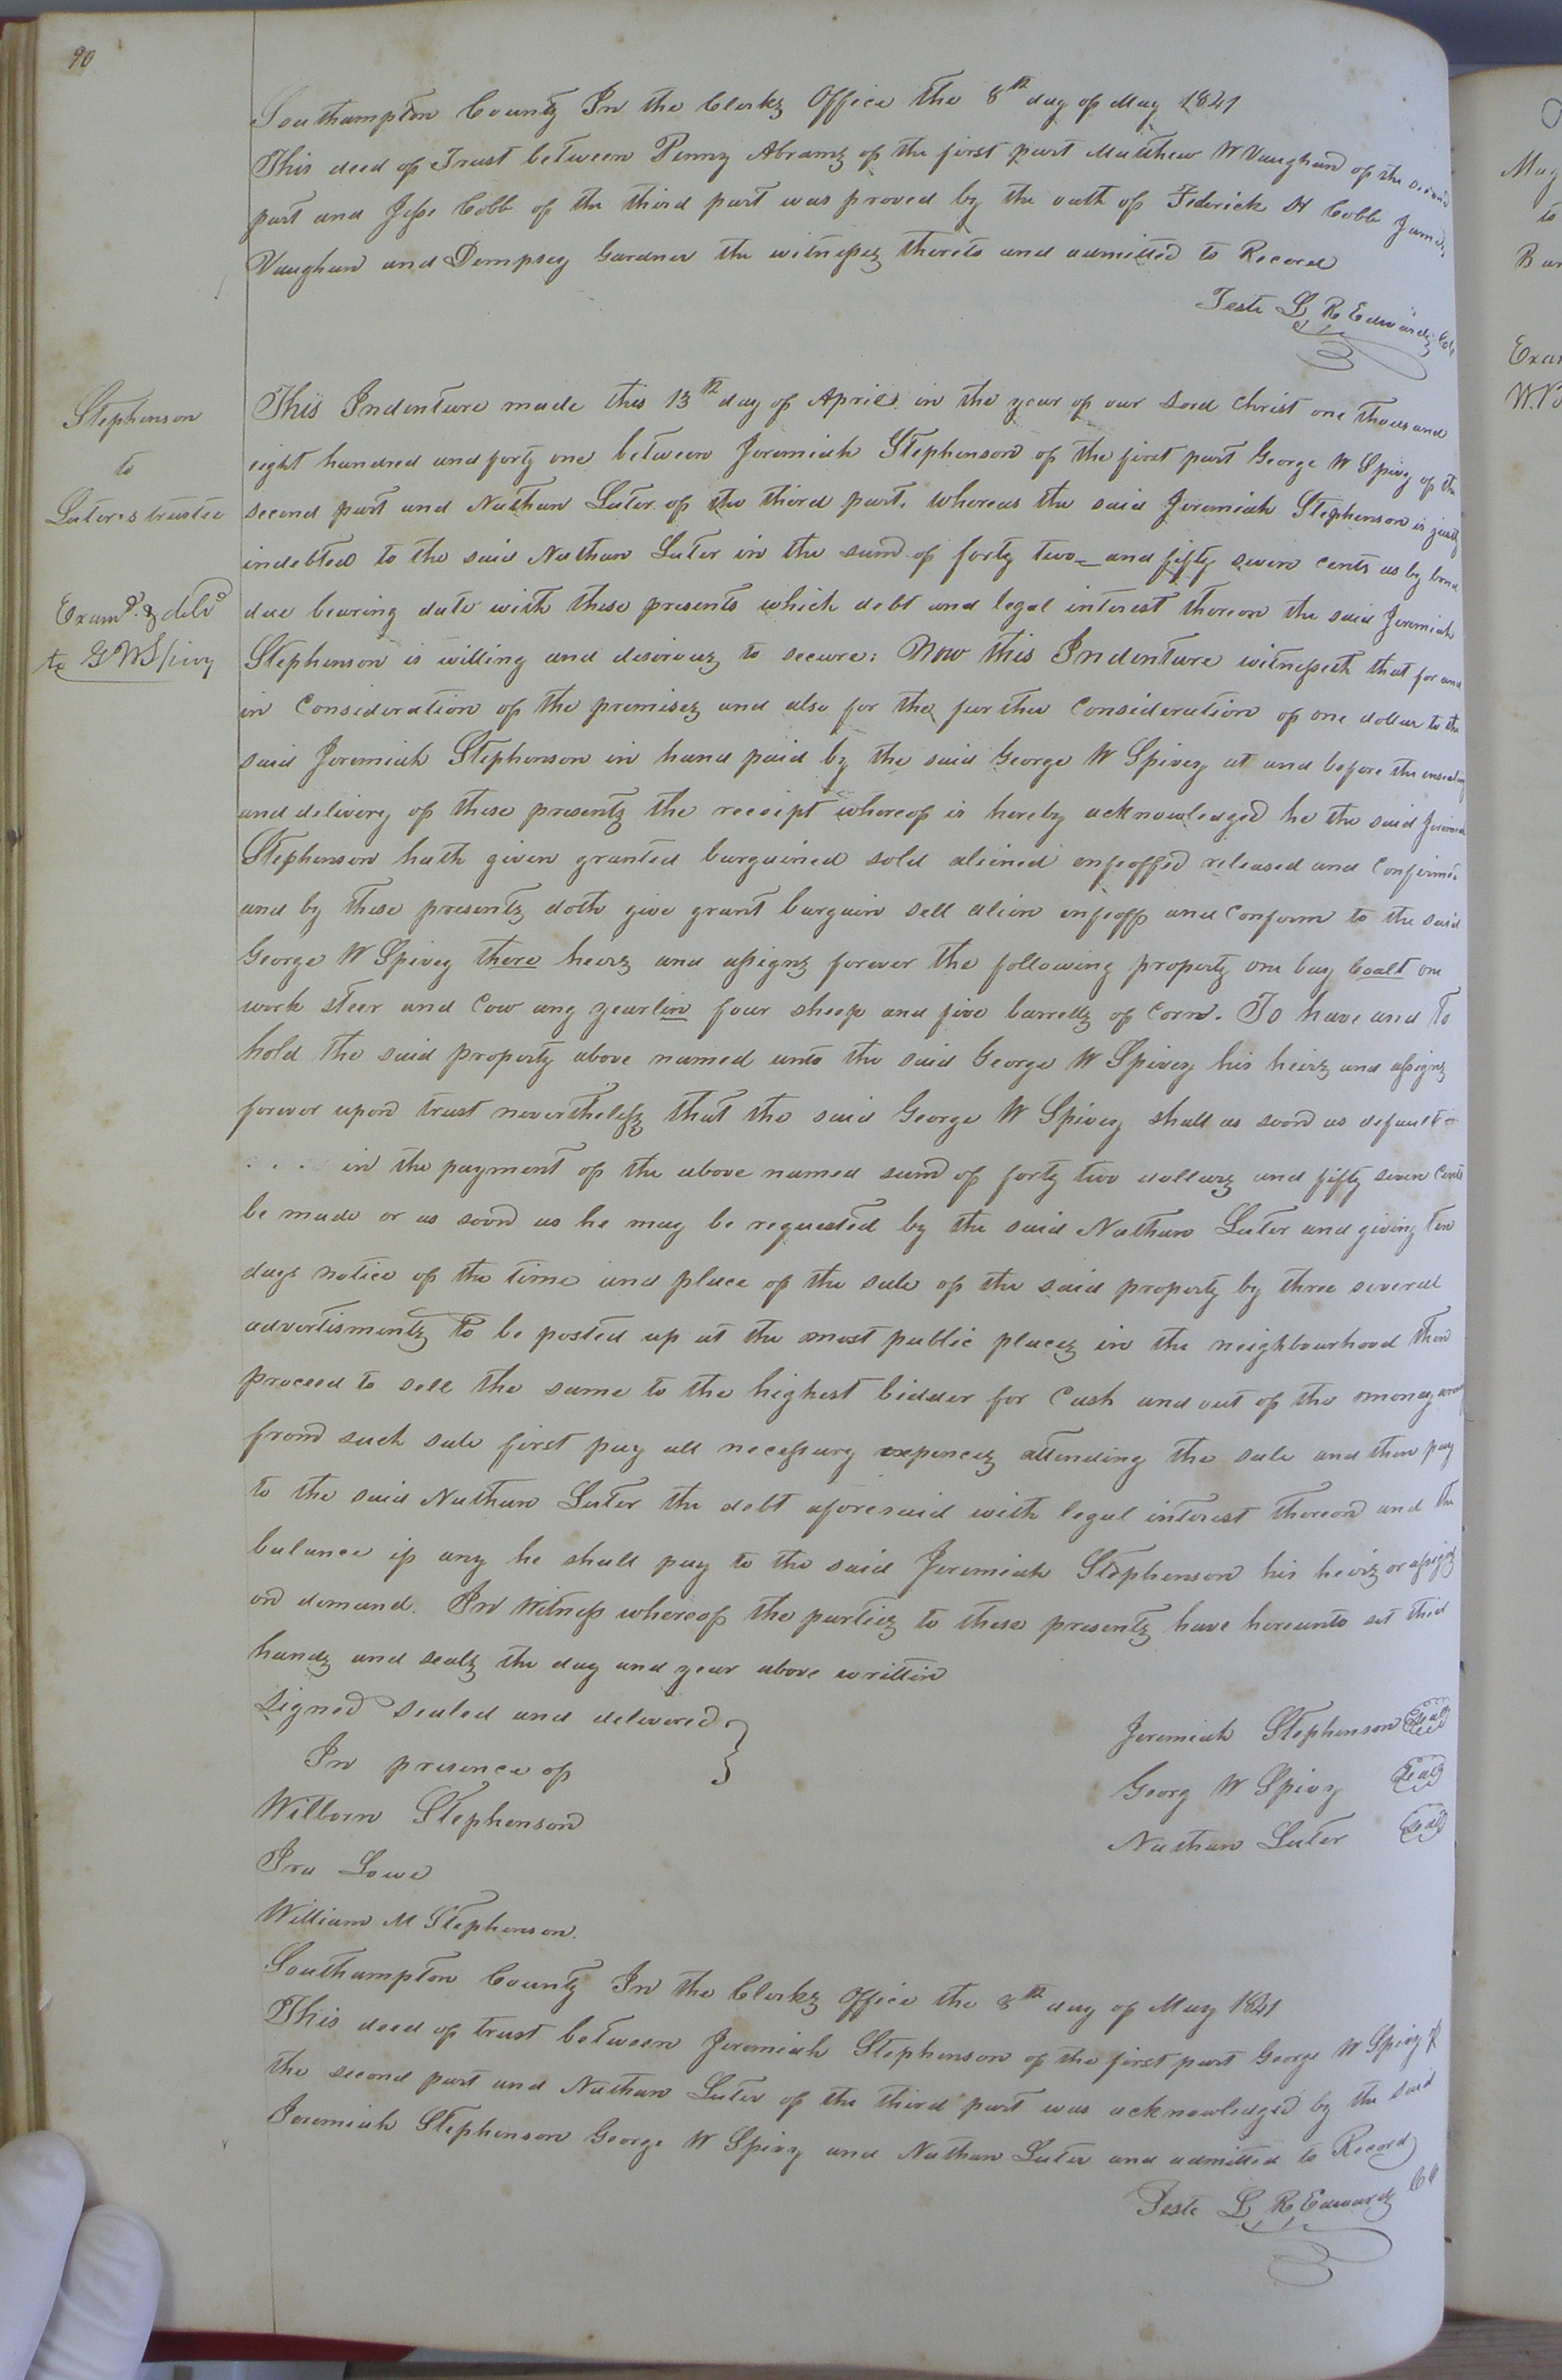 90
Southampton County In the Clerks Office the 8th day of May 1841
This deed of Trust between Penny Abrams of the first part Matthew W Vaughan of the second
part and Jesse Cobb of the third part was proved by the oath of Federick H Cobb James
Vaughan and Dempsey Gardner the witnesses thereto and admitted to Record
Teste L R Edwards Clk
Stephenson
to
Luter's trustee
Examd. & deld
to G W Spivy
This Indenture made this 13th day of April in the year of our Lord Christ one thousand
eight hundred and forty one between Jeremiah Stephenson of the first part George W Spivy of the
second part and Nathan Luter of the third part, whereas the said Jeremiah Stephenson is justly
indebted to the said Nathan Luter in the sum of forty two and fifty seven cents as by bond
due bearing date with these presents which debt and legal interest thereon the said Jeremiah
Stephenson is willing and desirous to secure: Now this Indenture witnesseth that for and
in Consideration of the premises and also for the further Consideration of one dollar to the
said Jeremiah Stephenson in hand paid by the said George W Spivey at and before the ensealing
and delivery of these presents the receipt whereof is hereby acknowledged he the said Jeremiah
Stephenson hath given granted bargained sold aliened enfeoffed released and Confirmed
and by these presents doth give grant bargain sell alien enfeoff and Confirm to the said
George W Spivey there heirs and assigns forever the following property one bay Coalt one
work steer and Cow any yearlin four sheep and five barrells of Corn. To have and To
hold the said property above named unto the said George W Spivey his heirs and assigns
forever upon trust nevertheless that the said George W Spivey shall as soon as default
in the payment of the above named sum of forty two dollars and fifty seven Cents
be made or as soon as he may be requested by the said Nathan Luter and giving ten
days notice of the time and place of the sale of the said property by three several
advertisments to be posted up at the most public places in the neighbourhood then
proceed to sell the same to the highest bidder for Cash and out of the money
from such sale first pay all necessary expences attending the sale and then pay
to the said Nathan Luter the debt aforesaid with legal interest thereon and the
balance if any he shall pay to the said Jeremiah Stephenson his heirs or assigns
on demand. In Witness whereof the parties to these presents have hereunto set their
hands and seals the day and year above written
Signed Sealed and delivered
In presence of
Wilborn Stephenson
Ira Lowe
William M Stephenson.
Jeremiah Stephenson Seal
Georg W Spivy Seal
Nathan Luter Seal
Southampton County In the Clerks Office the 8th day of May 1841
This deed of trust between Jeremiah Stephenson of the first part George W Spivy of
the second part and Nathan Luter of the third part was acknowledged by the said
Jeremiah Stephenson George W Spivy and Nathan Luter and admitted to Record
Teste L R Edwards Cl